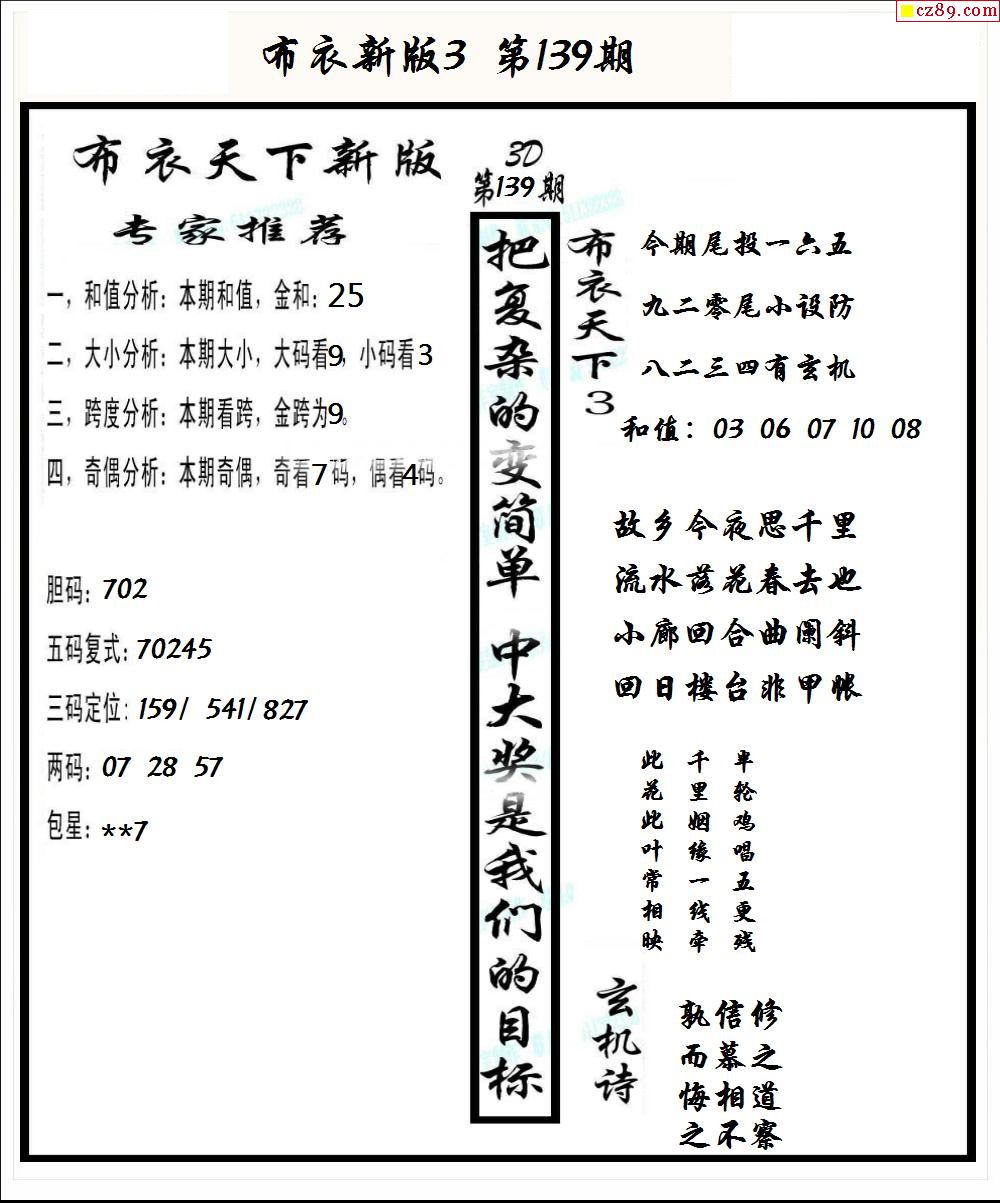 cz89.com
布衣新版3 第139期
布衣天下新版
专家推荐
一，和值分析：本期和值，金和：25
二，大小分析：本期大小，大码看9，小码看3
三，跨度分析：本期看跨，金跨为9。
四，奇偶分析：本期奇偶，奇看7码，偶看4码。
胆码：702
五码复式：70245
三码定位：159/ 541/827
两码：07 28 57
包星：**7
3D
第139期
把复杂的变简单 中大奖是我们的目标
布衣天下3
今期尾投一六五
九二零尾小设防
八二三四有玄机
和值：03 06 07 10 08
故乡今夜思千里
流水落花春去也
小廊回合曲阑斜
回日楼台非甲帐
此花此叶常相映
千里姻缘一线牵
半轮鸡唱五更残
玄机诗
孰信修
而慕之
悔相道
之不察